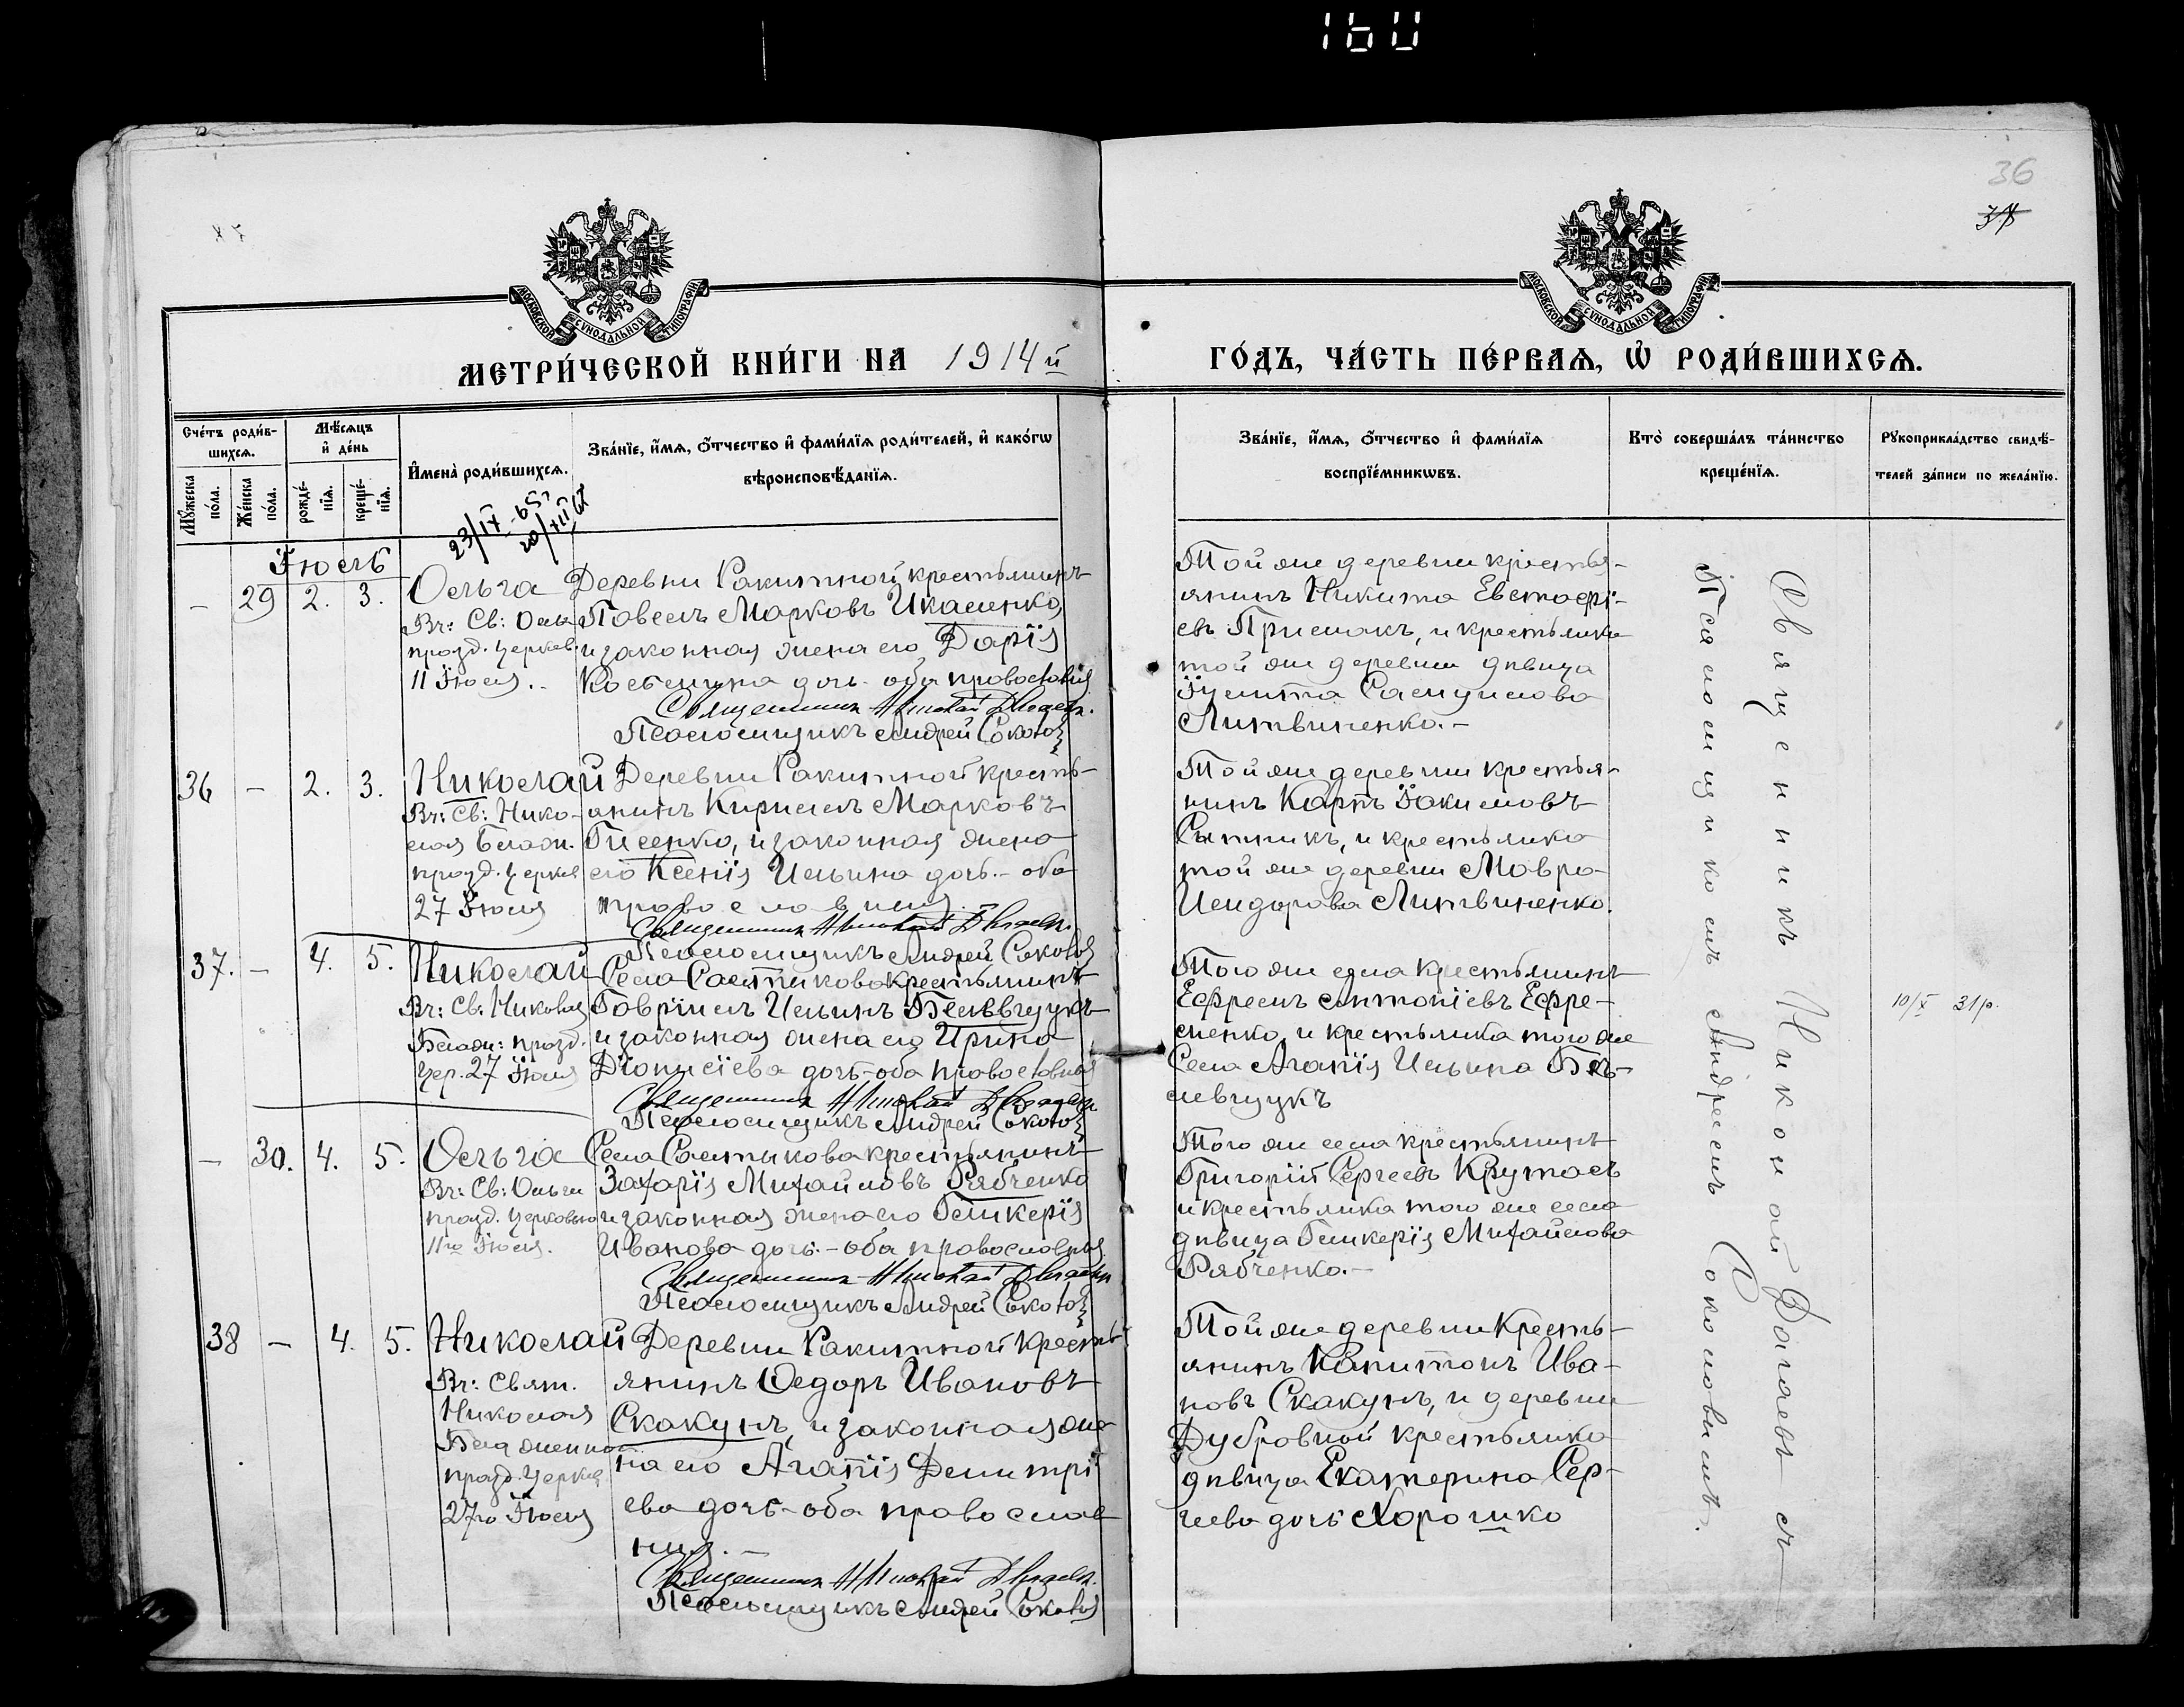 160
36
МОСКОВСКОЙ СУНОДАЛЬНОЙ ТИПОГРАФІИ
МОСКОВСКОЙ СУНОДАЛЬНОЙ ТИПОГРАФІИ
МЕТРИ́ЧЕСКОЙ КНИ́ГИ НА 1914 й
ГО́ДЪ, ЧА́СТЬ ПЕ́РВАѦ, Ѡ҆ РОДИ́ВШИХСѦ.
Сче́тъ роди́в-
шихсѧ.
Мѣ́сѧцъ
и҆ де́нь
Мꙋ́жеска
по́ла.
Же́нска
по́ла.
рожде́-
нїѧ.
креще́-
нїѧ.
И҆мена̀ роди́вшихсѧ.
Зва́нїе, и҆́мѧ, ѻ҆́тчество и҆ фами́лїѧ роди́телей, и҆ како́гѡ
вѣроисповѣ́данїѧ.
Зва́нїе, и҆́мѧ, ѻ҆́тчество и҆ фами́лїѧ
воспрїе́мникѡвъ.
Кто̀ соверша́лъ та́инство
креще́нїѧ.
Рꙋкоприкла́дство свидѣ́-
телей за́писи по жела́нїю.
23/IV - 65
20/VII 67
Іюль
– 29 2. 3.
Ольга
Вч: Св: Оль
празд. Церков.
11 Іюля.
Деревни Ракитной крестьянинъ
Павелъ Марковъ Икаленко,
и законная жена его Дарія
дочь - оба православныя
Священникъ Николай Дагаевъ.
Псаломщикъ Андрей Соколов
Той же деревни кресть-
янинъ Никита Евстафі-
евъ Примакъ, и крестьянка
той же деревни дѣвица
Іулитта Самуилова
Литвиненко.-
36 – 2. 3.
Николай
Вч: Св: Нико-
лая Блаж.
празд. Церков
27 Іюля
Деревни Ракитной кресть-
янинъ Кириллъ Марковъ
Гисенко, и законная жена
его Ксенія Ильина дочь. - оба
православныя.
Священникъ Николай Дагаевъ.
Псаломщикъ Андрей Соколов
Той же деревни крестья-
нинъ Карпъ Іоакимовъ
Сытникъ, и крестьянка
той же деревни Мавра
Исидорова Литвиненко.
37. – 4. 5.
Николай
Вч: Св: Николая
Блаж: празд.
Цер. 27 Іюля
Села Састикова крестьянинъ
Гавріилъ Ильинъ
и законная жена его Ирина
Діонисіева дочь - оба православныя
Священникъ Николай Дагаевъ
Псаломщикъ Андрей Соколов
Того же села крестьянинъ
Ефремъ Антоніевъ Ефре-
менко, и крестьянка того же
села Агапія Ильина
10/X 31 р.
– 30. 4. 5.
Ольга
Вч: Св: Ольги
празд. Церковью
11го Іюля.
Села Састикова крестьянинъ
Захарія Михайловъ Рябченко
и законная жена его Гликерія
Иванова дочь. - оба православныя
Священникъ Николай Дагаевъ
Псаломщикъ Андрей Соколов
Того же села крестьянинъ
Григорій Сергеевъ Крутасъ
и крестьянка того же села
дѣвица Гликерія Михайлова
Рябченко.-
38 – 4. 5.
Николай
Вч: Свят.
Николая
Блаженнаго
празд. Церков
27го Іюля
Деревни Ракитной кресть-
янинъ Ѳедоръ Ивановъ
Скакунъ, и законная же-
на его Агапія Димитрі-
ева дочь - оба православ-
ныя.
Священникъ Николай Дагаевъ.
Псаломщикъ Андрей Соколов
Той же деревни Кресть-
янинъ Капитонъ Ива-
новъ Скакунъ, и деревни
Дубровной крестьянка
дѣвица Екатерина Сер-
геева дочь Хорошко
Священникъ Николай Дагаевъ съ
Псаломщикомъ Андреемъ Соколовымъ.